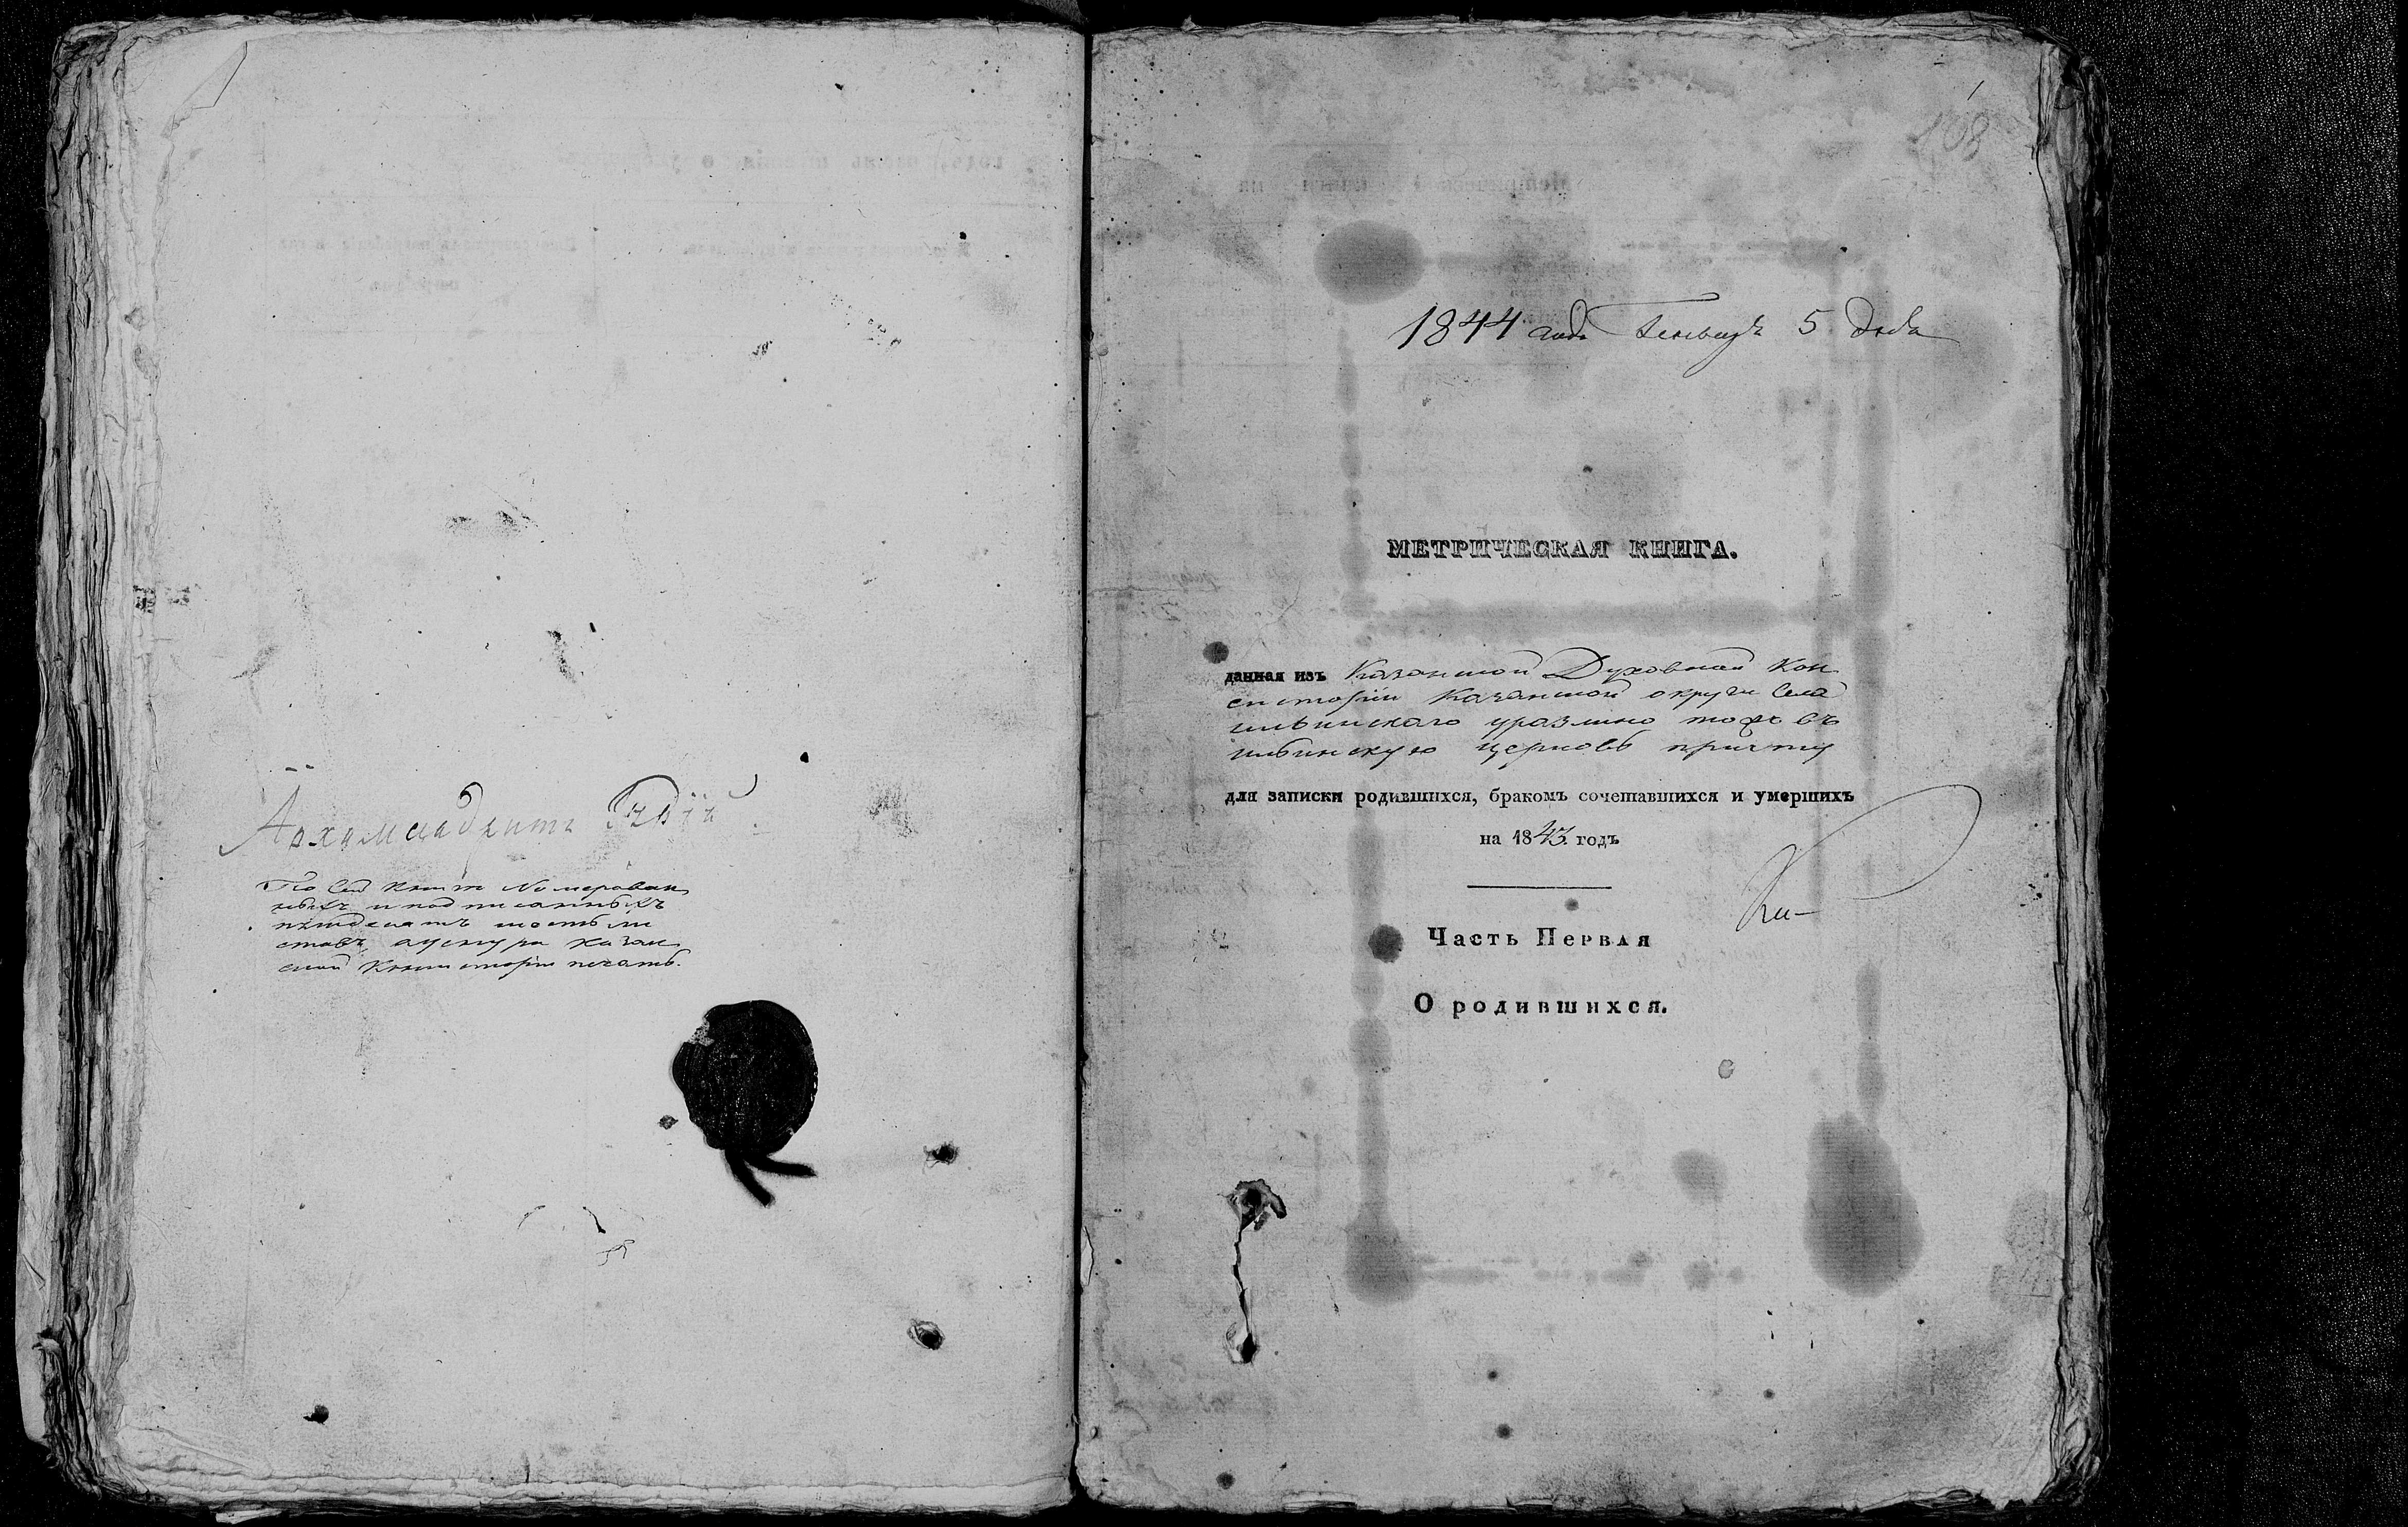 Архимандритъ
По сей книге Номерован
ныхъ и подписанныхъ
пятдесятъ шесть ли
стовъ,
ской Консисторіи печать.
108
1844 года Генваря 5 дня
МЕТРИЧЕСКАЯ КНИГА.
данная изъ Казанской Духовной Кон
систоріи Казанской округи Села
ильинскаго
ильинскую церковь причту
для записки родившихся, бракомъ сочетавшихся и умершихъ
на 1843. годъ
Часть Первая
О родившихся.